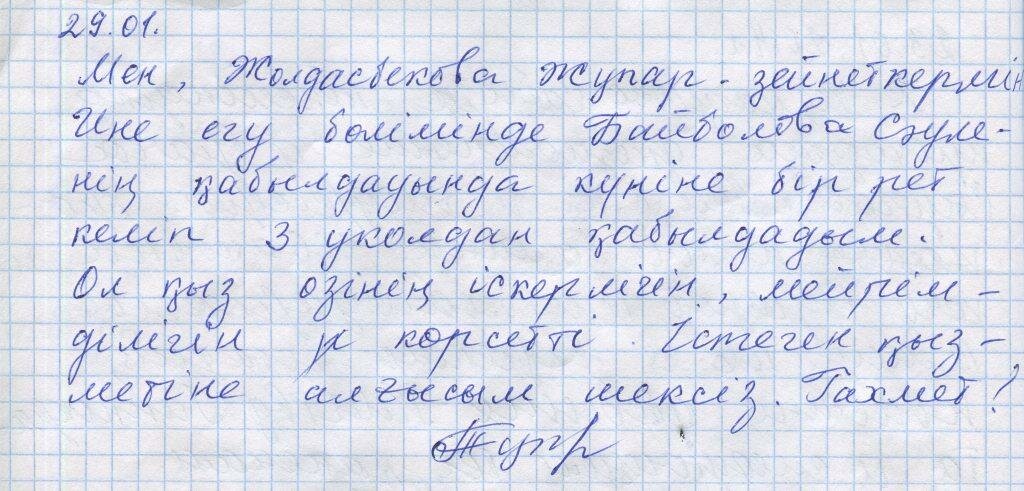 29.01.
Мен, Жолдасбекова Жупар - зейнеткермін
Ине егу бөлімінде Байболова Сәуле-
нің қабылдауында күніне бір рет
келіп 3 уколдан қабылдадым.
Ол қыз өзінің іскермігін, мейрім-
ділігін көрсетті. Істеген қыз-
метіне алғысым шексіз. Рахмет!